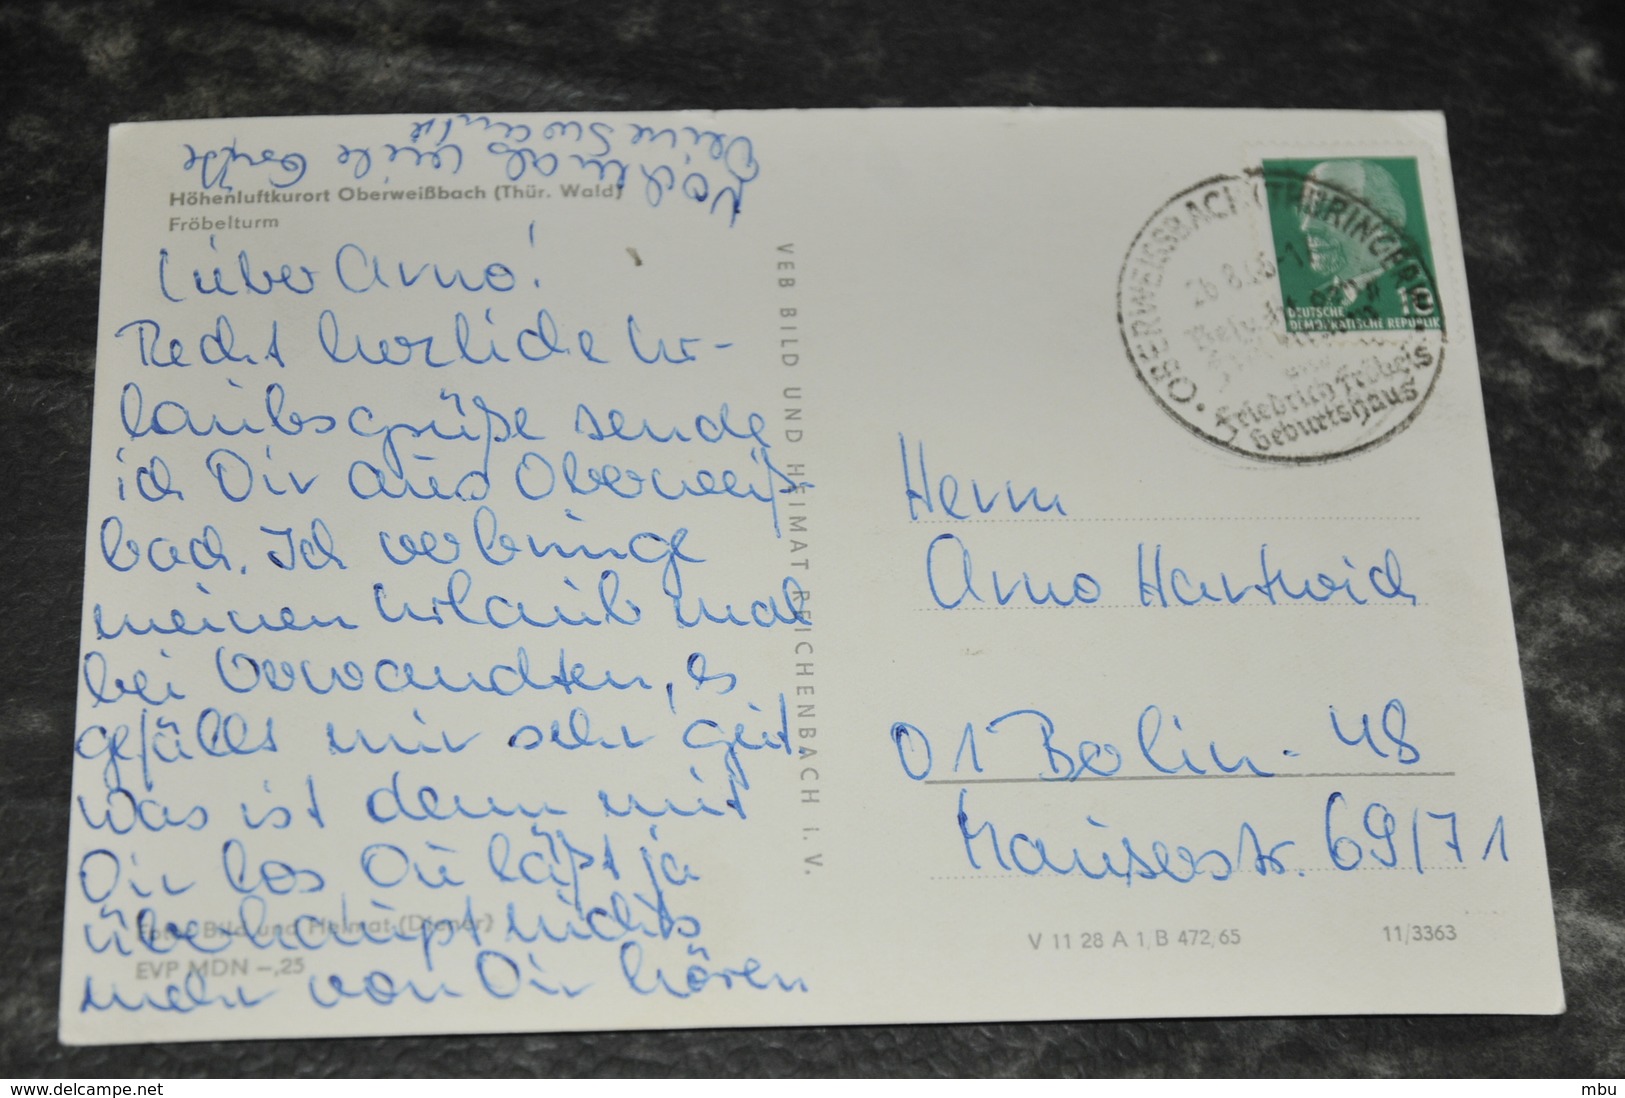 Nochmals viele Grüße
Deine Swantje
Höhenluftkurort Oberweißbach (Thür. Wald)
Fröbelturm
Lieber Arno!
Recht herzliche Ur-
laubsgrüße sende
ich Dir aus Oberweiß
bach. Ich verbringe
meinen Urlaub mal
bei Verwandten, es
gefällt mir sehr gut.
Was ist denn mit
Dir los, Du läßt ja
überhaupt nichts
mehr von Dir hören
Foto: Bild und Heimat (Diener)
EVP MDN -,25
VEB BILD UND HEIMAT REICHENBACH I. V.
OBERWEISSBACH (THÜRINGER WALD)
26.8.66-1
Friedrich Fröbels
Geburtshaus
10
DEUTSCHE
DEMOKRATISCHE REPUBLIK
Herrn
Arno Hartwich
01 Berlin - 48
Mauserstr. 69/71
V 11 28 A 1/B 472/65
11/3363
www.delcampe.net
mbu